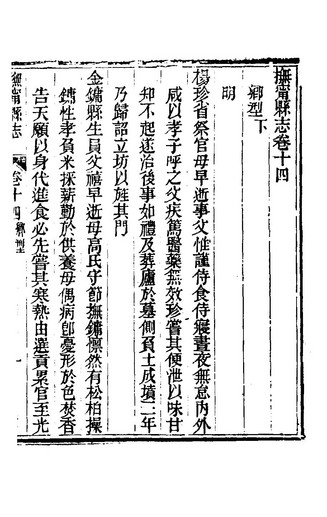 撫甯縣志卷十四
鄉型下
明
楊珍省祭官母早逝事父惟謹侍食侍寢晝夜無怠內外
咸以孝子呼之父疾篤醫藥無效珍嘗其便泄以味甘
知不起逐治後事如禮及葬廬於墓側負土成墳二年
乃歸詔立坊以旌其門
金鏞縣生員父禧早逝母高氏守節撫鏞懍然有松柏操
鏞性孝負米採薪勤於供養母偶病卽憂形於色焚香
告天願以身代進食必先嘗其寒熱由選貢累官至光
撫甯縣志
卷十四 鄉型